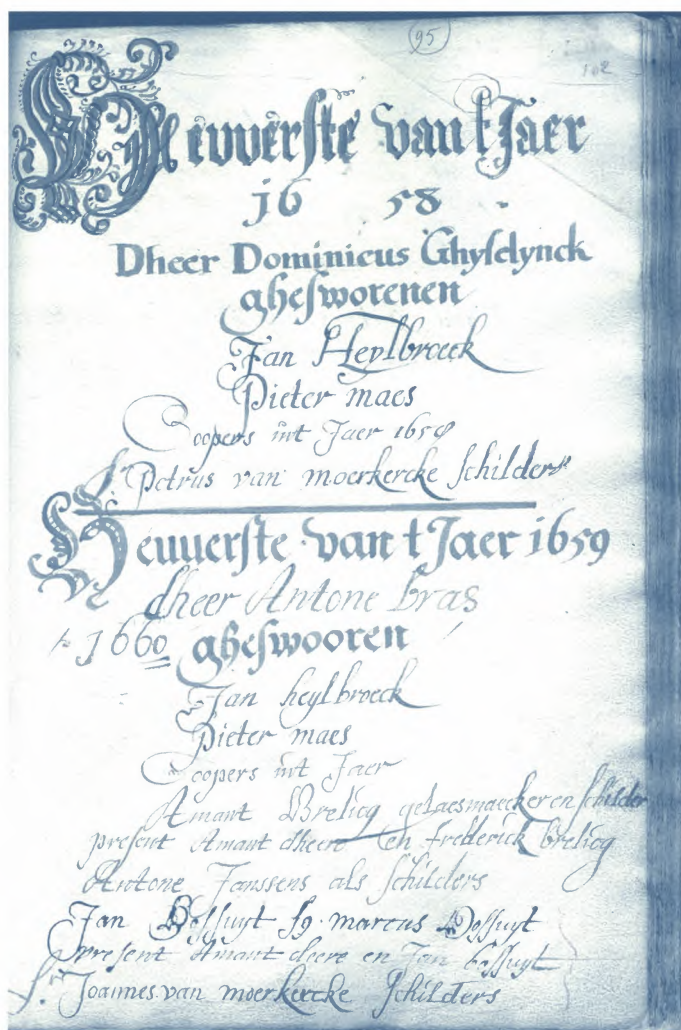 95
102
Heuverste van t Jaer
j6 58
Dheer Dominicus Ghyselynck
ghesworenen
Jan Heylbroeck
Pieter maes
Coopers int Jaer 1658
Sr Petrus van moerkercke schilder
Heuverste van t Jaer 1659
dheer Antone bras
1660 gheswooren
Jan heylbroeck
Pieter maes
Coopers int Jaer
Amant Brelicq gelaesmaecker en schilder
present Amant dheere en frederick brelicq
Antone Janssens als schilders
Jan Bossuyt fs. marcus Bossuyt
present Amant deere en Jan bossuyt
Sr Joannes van moerkercke schilders